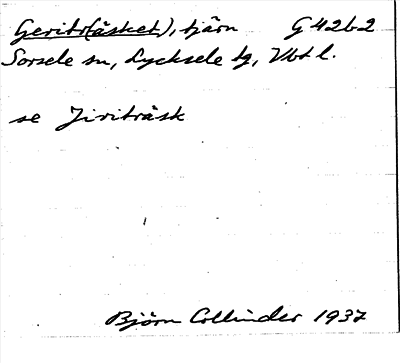 Geritr(äsket), tjärn G 42b2
Sorsele sn, Lycksele tg, Vbt l.
se Jiriträsk
Björn Collinder 1937